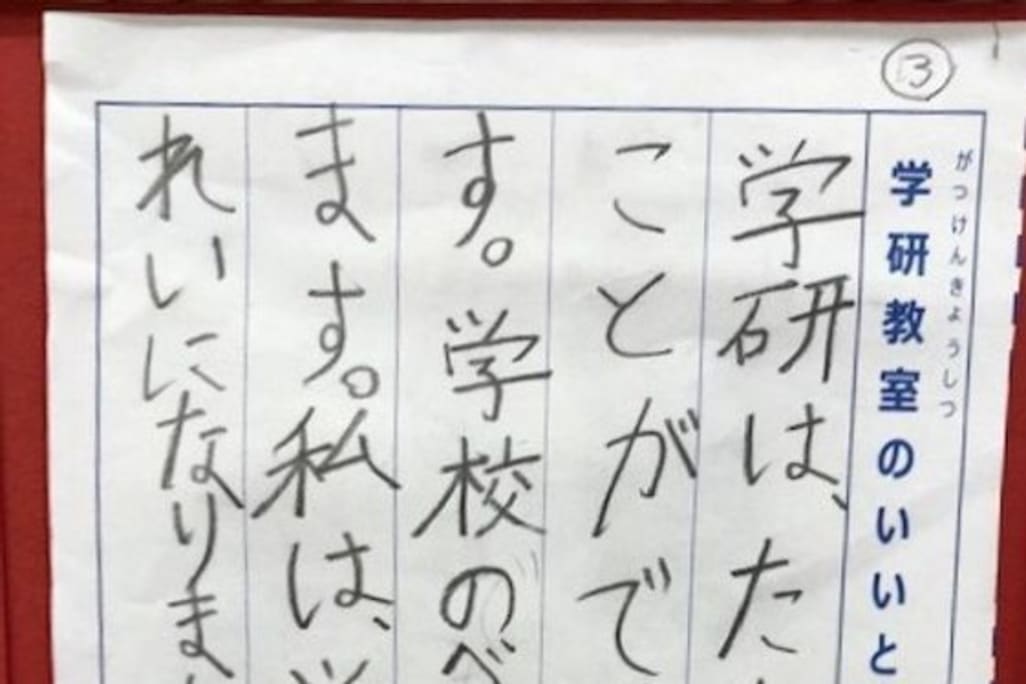 ③
がっけんきょうしつ
学研教室のいいと
学研は、た
ことがで
す。学校のべ
ます。私は、学
れいになりま